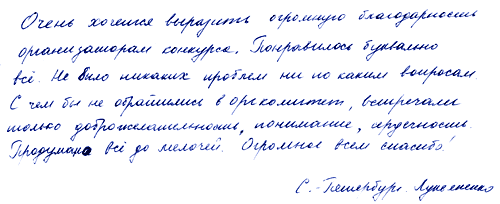 Очень хочется выразить огромную благодарность
организаторам конкурса. Понравилось буквально
всё. Не было никаких проблем ни по каким вопросам.
С чем бы не обратились в оргкомитет, встречали
только доброжелательность, понимание, сердечность.
Продумано всё до мелочей. Огромное всем спасибо!
С.-Петербург.